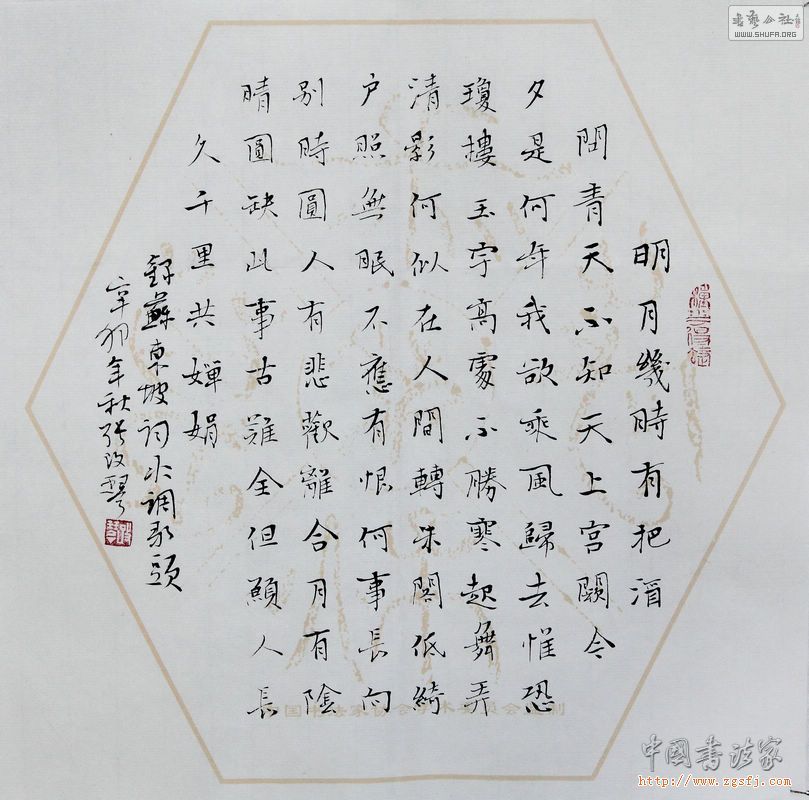 明月幾時有把酒
問青天不知天上宮闕今
夕是何年我欲乘風歸去惟恐
瓊樓玉宇高處不勝寒起舞弄
清影何似在人間轉朱閣低綺
户照無眠不應有恨何事長向
别時圓人有悲歡離合月有陰
晴圓缺此事古難全但願人長
久千里共嬋娟
録蘇東坡詞水調歌頭
辛卯年秋張改琴
書藝公社
WWW.SHUFA.ORG
中國書法家
http://www.zgsfj.com